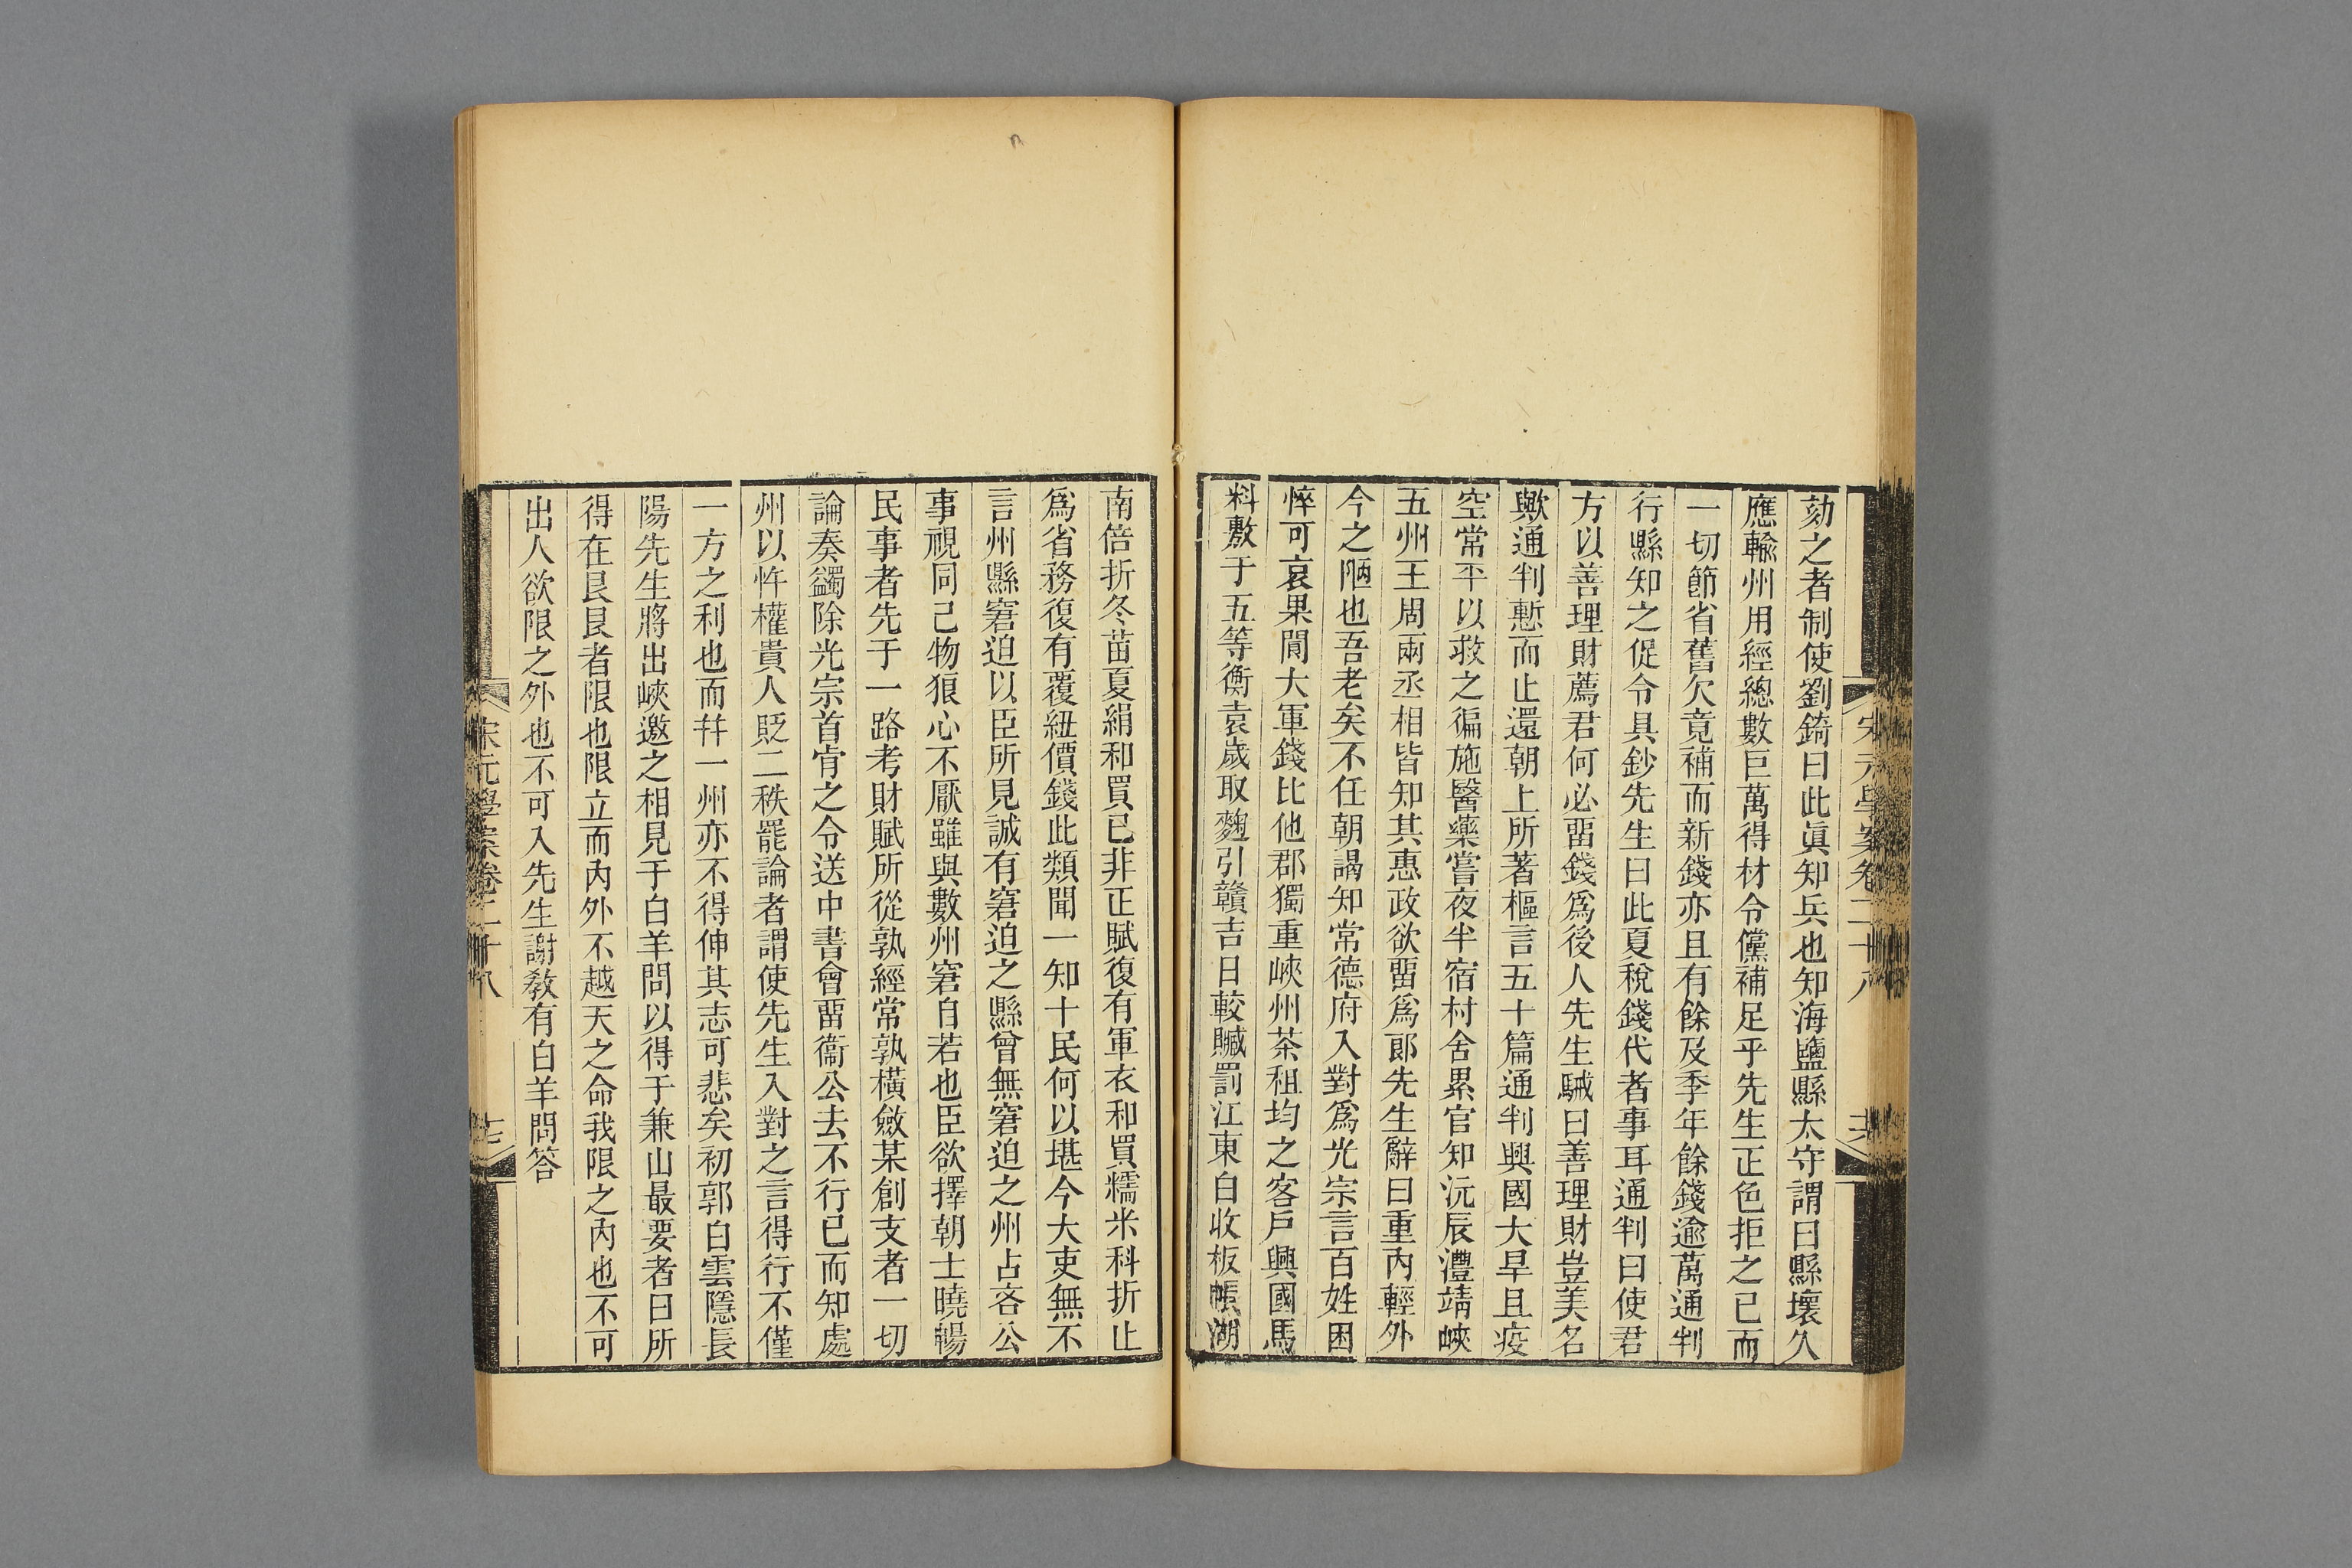 劾之者制使劉錡曰此眞知兵也知海鹽縣太守謂曰縣壞久
應輸州用經總數巨萬得材令儻補足乎先生正色拒之已而
一切節省舊欠竟補而新錢亦且有餘及季年餘錢逾萬通判
行縣知之促令具鈔先生曰此夏稅錢代者事耳通判曰使君
方以善理財薦君何必畱錢爲後人先生駴曰善理財豈美名
歟通判慙而止還朝上所著樞言五十篇通判興國大旱且疫
空常平以救之徧施醫藥嘗夜半宿村舍累官知沅辰澧靖峽
五州王周兩丞相皆知其惠政欲畱爲郞先生辭曰重內輕外
今之陋也吾老矣不任朝謁知常德府入對爲光宗言百姓困
悴可哀果閒大軍錢比他郡獨重峽州茶租均之客戶興國馬
料敷于五等衡袁歲取麴引贛吉日較贓罰江東白收板帳湖
南倍折冬苗夏絹和買已非正賦復有軍衣和買糯米科折止
爲省務復有覆紐價錢此類聞一知十民何以堪今大吏無不
言州縣窘迫以臣所見誠有窘迫之縣曾無窘迫之州占吝公
事視同己物狼心不厭雖與數州窘自若也臣欲擇朝士曉暢
民事者先于一路考財賦所從孰經常孰橫斂某創支者一切
論奏蠲除光宗首肯之令送中書會畱衞公去不行已而知處
州以忤權貴人貶二秩罷論者謂使先生入對之言得行不僅
一方之利也而幷一州亦不得伸其志可悲矣初郭白雲隱長
陽先生將出峽邀之相見于白羊問以得于兼山最要者曰所
得在艮艮者限也限立而內外不越天之命我限之內也不可
出人欲限之外也不可入先生謝敎有白羊問答
宋元學案卷二十八